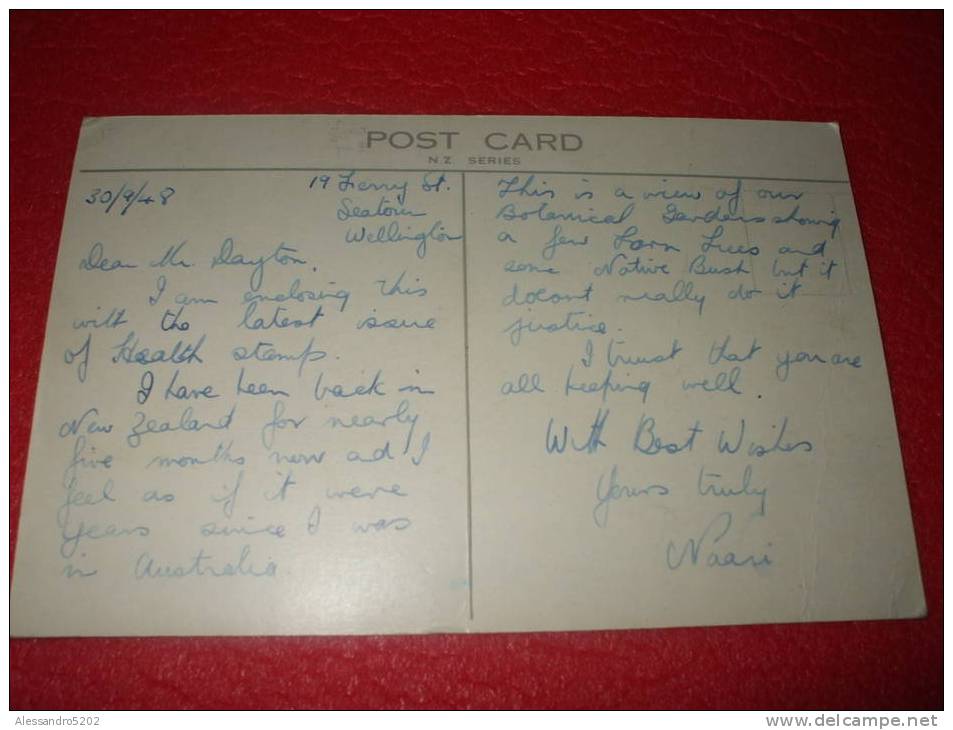 POST CARD
N.Z. SERIES
30/9/48
19 Ferry St.
Seatoun
Wellington
Dear Mr. Dayton,
I am enclosing this
with the latest issue
of Health stamps.
I have been back in
New Zealand for nearly
five months now and I
feel as if it were
years since I was
in Australia.
This is a view of our
Botanical Gardens showing
a few Farn Trees and
some Native Bush but it
doesnt really do it
justice.
I trust that you are
all keeping well.
With Best Wishes
Yours truly
Naari
Alessandro5202
www.delcampe.net